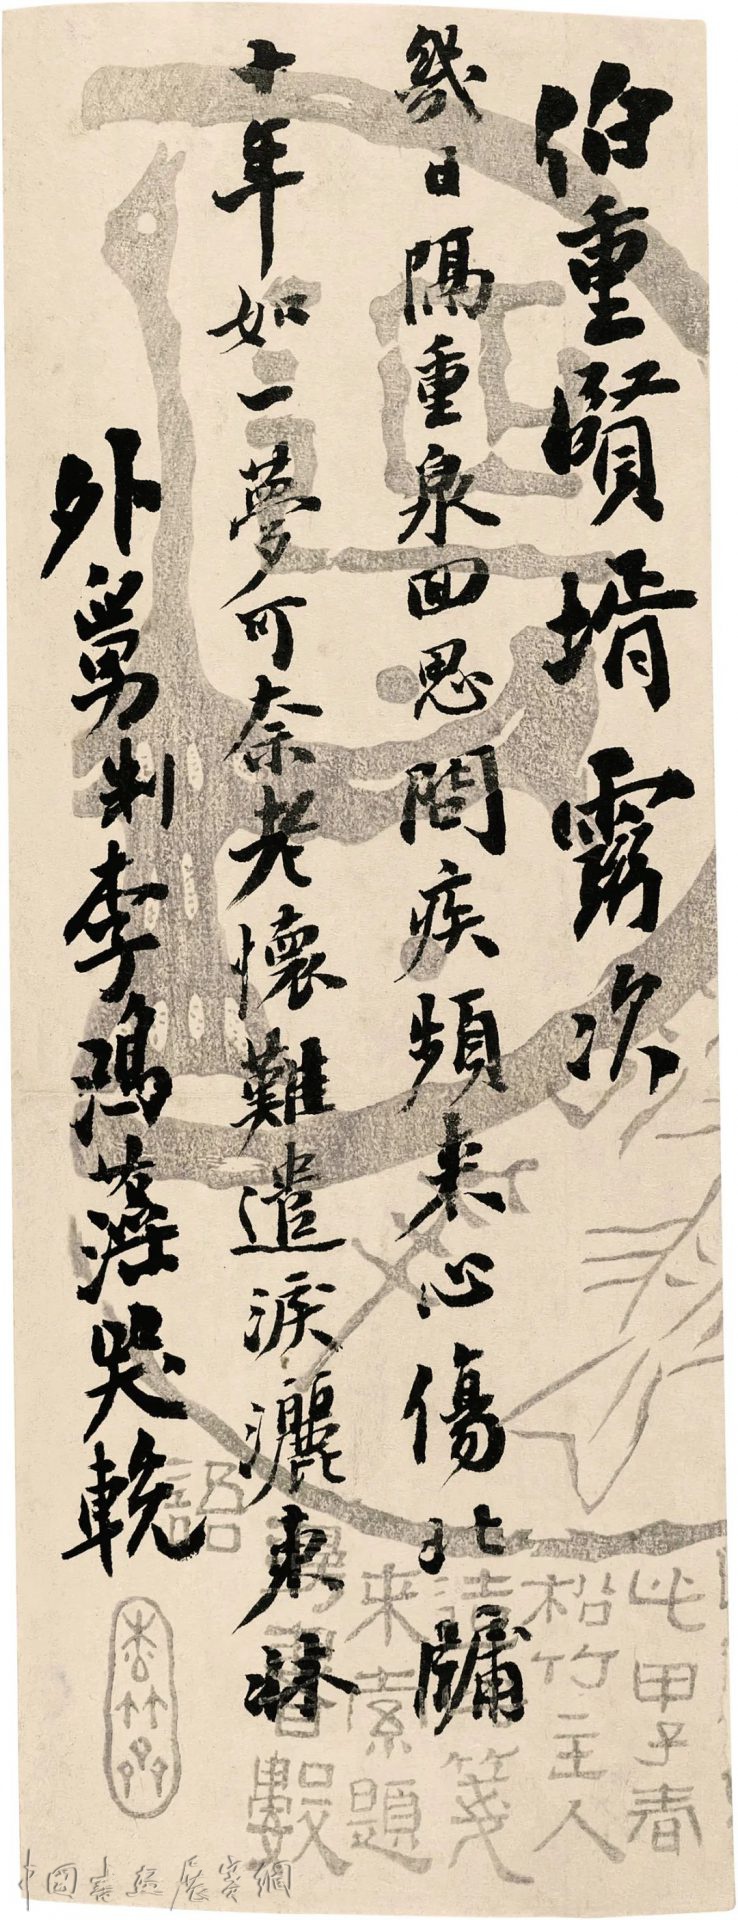 伯重賢壻靈次
幾日隔重泉回思問疾頻來心傷北牖
十年如一夢可奈老懷難遣淚灑東牀
外舅制李鴻藻哭輓
此甲子春
松竹主人
造笺
来索題
數
語
松竹
中國書畫展賽網